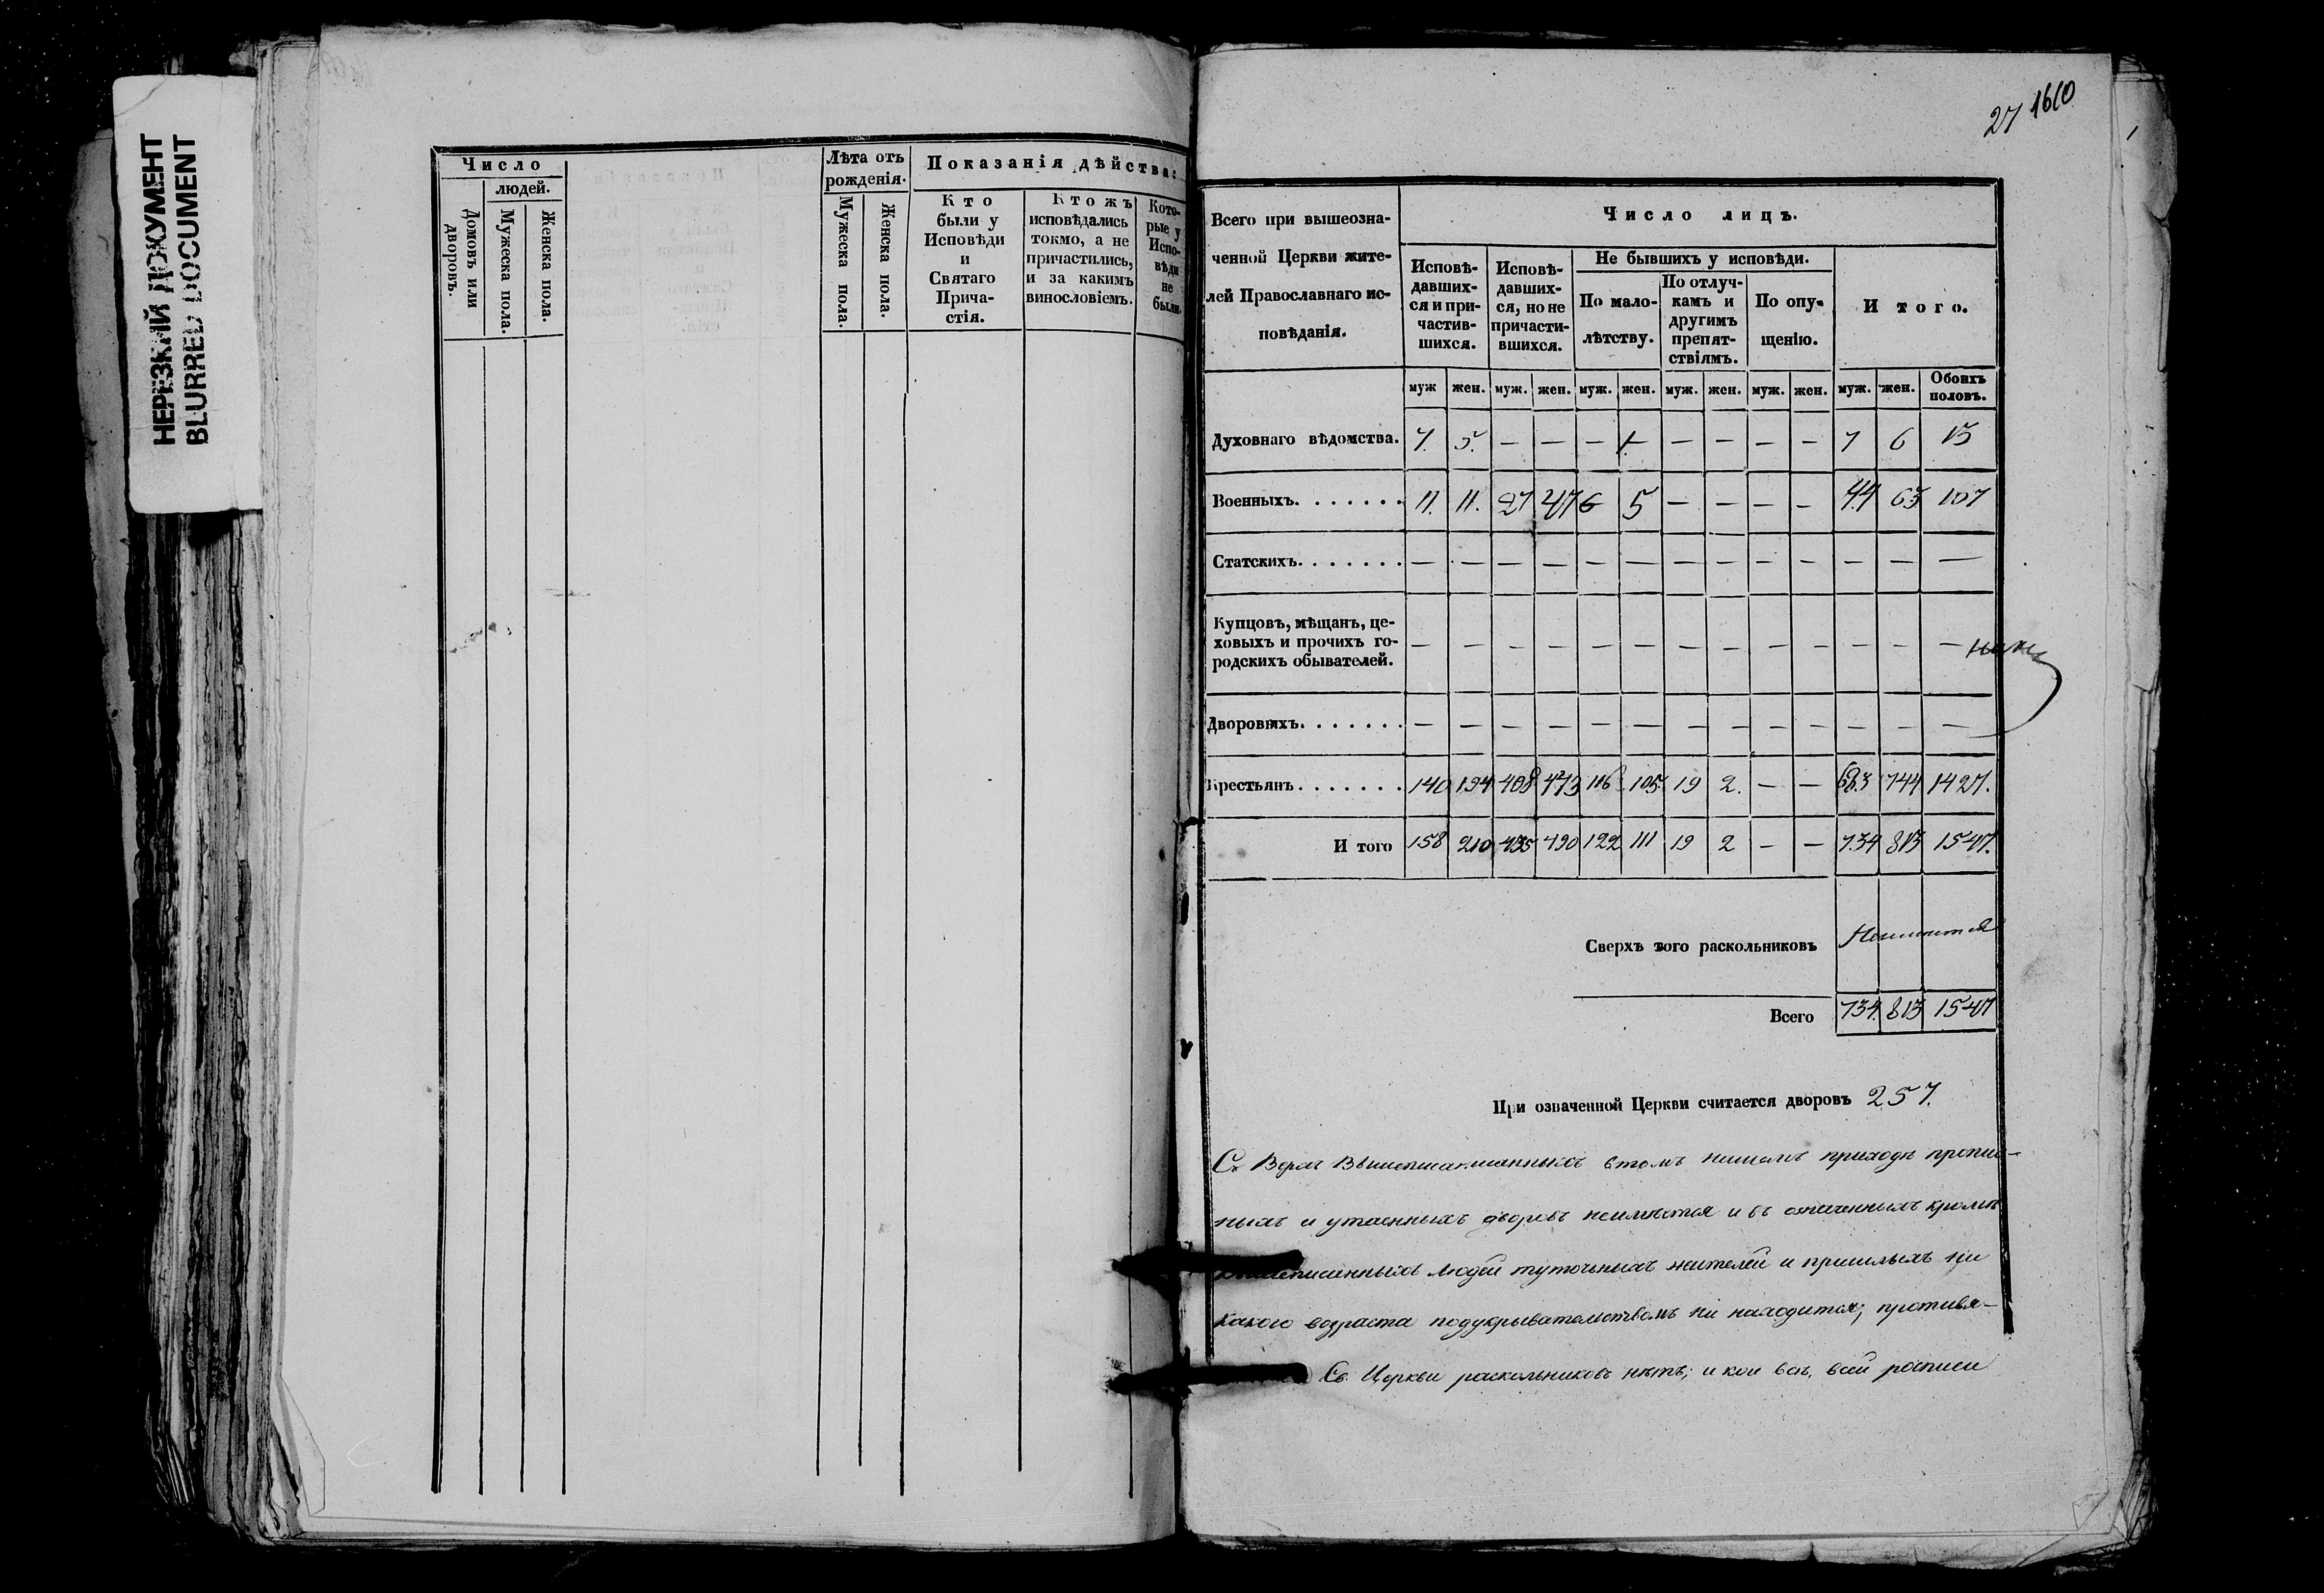 НЕРЕЗКИЙ ДОКУМЕНТ
BLURRED DOCUMENT
Число
людей.
Домовъ или дворовъ.
Мужеска пола.
Женска пола.
Лѣта отъ рожденія.
Мужеска пола.
Женска пола.
Показанія дѣйства:
Кто
были у
Исповѣди
и
Святаго
Прича-
стія.
Ктожъ
исповѣдались
токмо, а не
причастились,
и за какимъ
винословіемъ.
Кото-
рые у
Испо-
вѣди
не
были.
27 1660
Всего при вышеозна-
ченной Церкви жите-
лей Православнаго ис-
повѣданія.
Число лицъ.
Исповѣ-
давших-
ся и при-
частив-
шихся.
Исповѣ-
давших-
ся, но не
причасти-
вшихся.
Не бывшихъ у исповѣди.
По мало-
лѣтству.
По отлуч-
камъ и
другимъ
препят-
ствіямъ.
По опу-
щенію.
И того.
муж жен. муж. жен. муж. жен. муж. жен. муж. жен. муж. жен. Обоихъ половъ.
Духовнаго вѣдомства. 7. 5. — — — 1. — — — — 7 6 13
Военныхъ. . . . . . . 11. 11. 27 47 6 5 — — — — 44 63 107
Статскихъ. . . . . . . — — — — — — — — — — — — —
Купцовъ, мѣщанъ, це-
ховыхъ и прочихъ го-
родскихъ обывателей. — — — — — — — — — — — — —
Дворовыхъ. . . . . . . — — — — — — — — — — — — —
Крестьянъ. . . . . . . 140 194 408 443 116 105. 19 2. — — 683 744 1427.
И того 158 210 435 490 122 111 19 2 — — 734 813 1547.
Сверхъ того раскольниковъ Неимѣется
Всего 734. 813 1547
При означенной Церкви считается дворовъ 257.
Сверхъ вышеписанныхъ втомъ нашемъ приходѣ пропис-
ныхъ и утаенныхъ дворовъ неимѣется и въ означенныхъ кромѣ
вышеписанныхъ людей туточныхъ жителей и пришлыхъ ни
какого возраста подукрывательствомъ не находится; противя-
Св. Церкви раскольниковъ нѣтъ; и кои всѣ, всей росписи